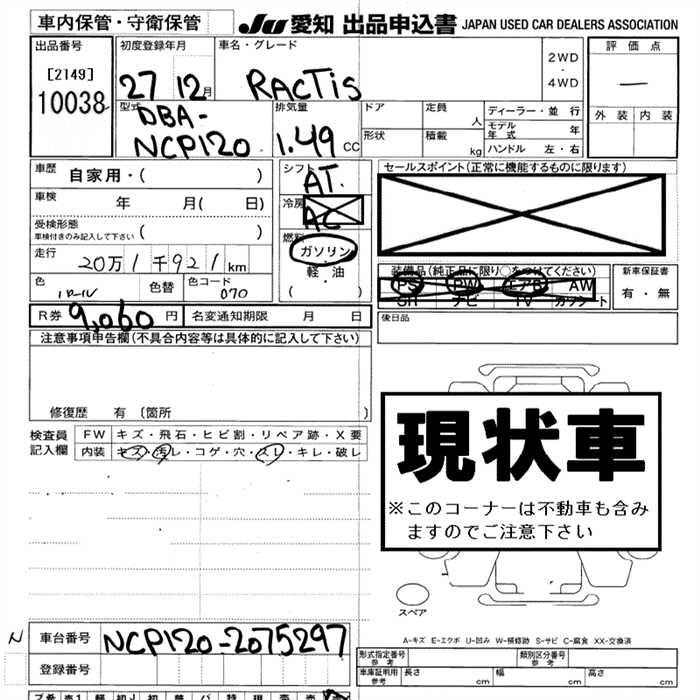 車内保管・守衛保管 JU 愛知 出品申込書 JAPAN USED CAR DEALERS ASSOCIATION
出品番号 初度登録年月 車名・グレード 2WD・4WD 評価点
[2149] 27 12月 RACTIS —
10038 型式 排気量 ドア 定員 人 ディーラー・並行 外装 内装
DBA- モデル年式 年
NCP120 1.49 CC 形状 積載 kg ハンドル 左・右
車歴 自家用・( ) シフト AT. セールスポイント(正常に機能するものに限ります)
車検 年 月( 日) 冷房 AC
受検形態
車検付きのみ記入して下さい ( ) 燃料 ガソリン
走行 20万1千921km 軽・油 装備品(純正品に限り○をつけてください) 新車保証書
色 色替 色コード 070 ( ) PS PW エアB AW 有・無
SH ナビ TV カワシート
R券 9,060円 名変通知期限 月 日 後日品
注意事項申告欄(不具合内容等は具体的に記入して下さい)
修復歴 有〔箇所 〕
検査員 FW キズ・飛石・ヒビ割・リペア跡・X要
記入欄 内装 キズ・汚レ・コゲ・穴・スレ・キレ・破レ
現状車
※このコーナーは不動車も含み
ますのでご注意下さい
スペア
A-キズ E-エクボ U-凹み W-補修跡 S-サビ C-腐食 XX-交換済
N 車台番号 NCP120-2075297 形式指定番号 参考 類別区分番号 参考
登録番号 車庫証明用 参考 長さ cm 幅 cm 高さ cm